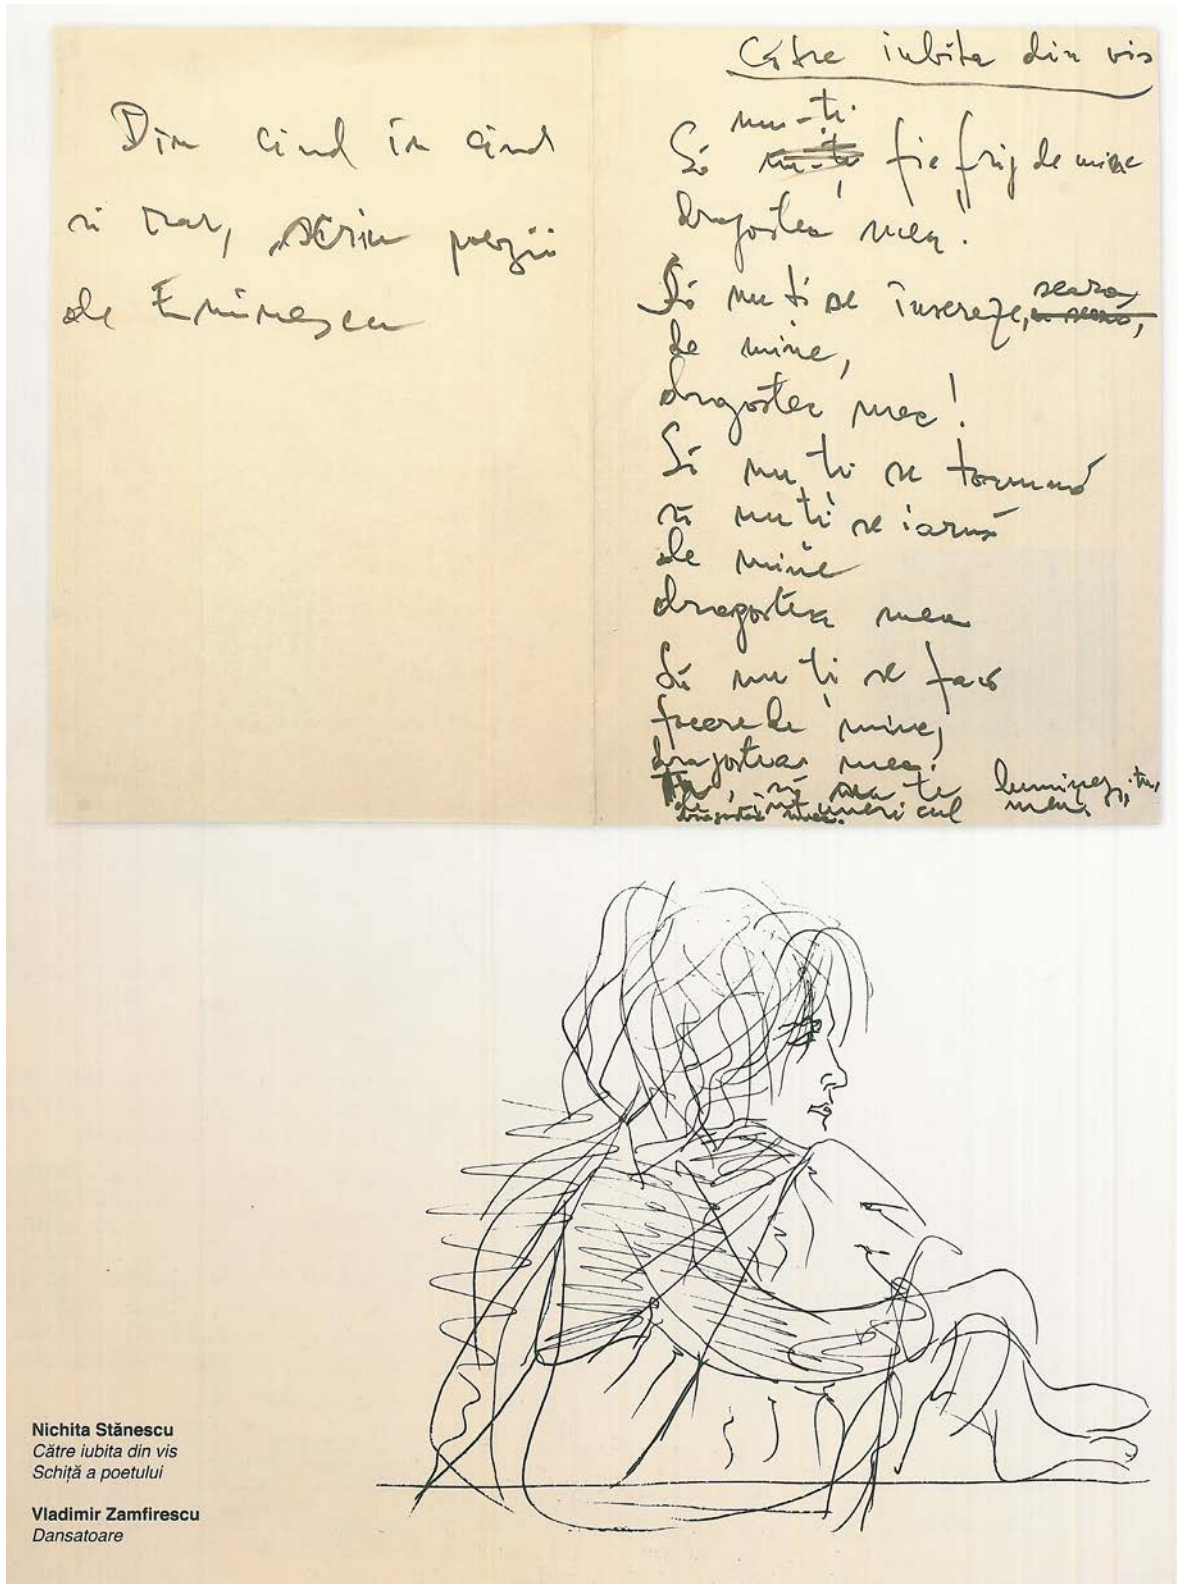 Din cînd în cînd
și rar, scriu poezii
de Eminescu
Către iubita din vis
nu-ți
Să nu-ți fie frig de mine
dragostea mea!
Să nu ți se însereze, seara,
de mine,
dragostea mea!
Să nu ți se toamnă
să nu ți se iarnă
de mine
dragostea mea
Să nu ți se facă
foere de mine,
dragostea mea.
să te luminez, tu,
întunericul meu.
dragostea mea.
Nichita Stănescu
Către iubita din vis
Schiță a poetului
Vladimir Zamfirescu
Dansatoare